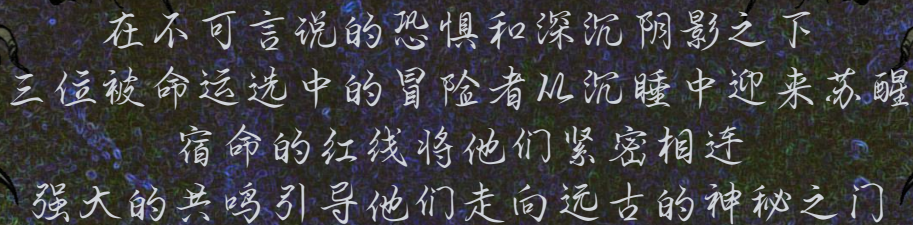 在不可言说的恐惧和深沉阴影之下
三位被命运选中的冒险者从沉睡中迎来苏醒
宿命的红线将他们紧密相连
强大的共鸣引导他们走向远古的神秘之门